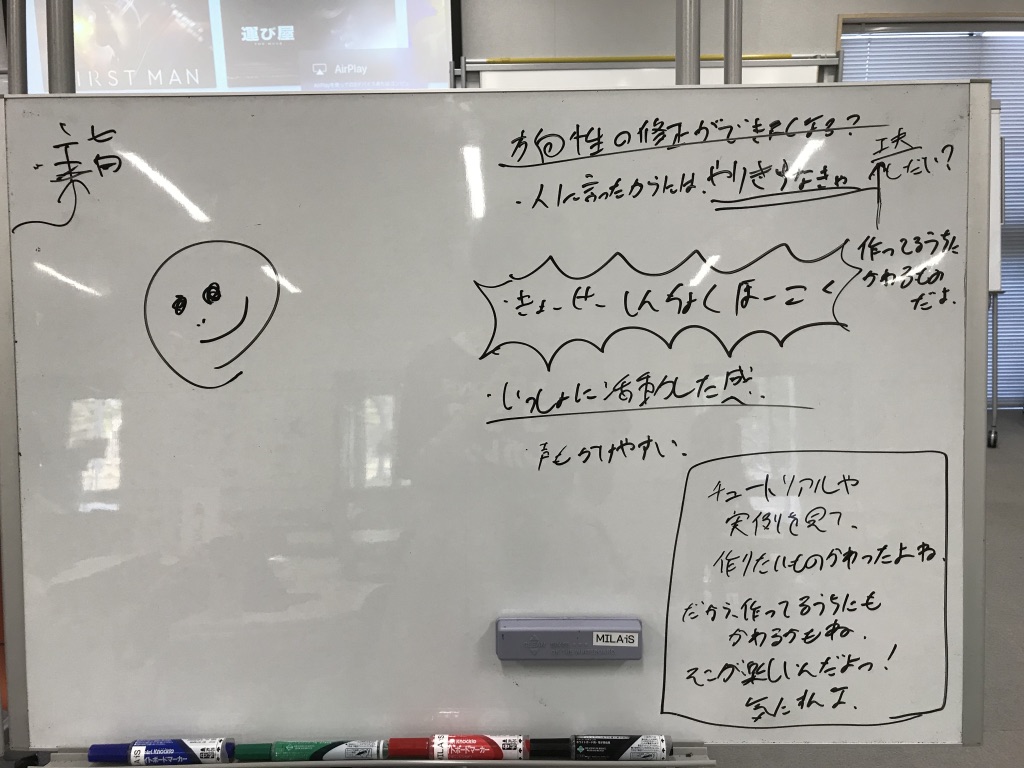 運び屋
FIRST MAN
AirPlay
方向性の修正ができなくなる?
・人に言ったからには、やりきらなきゃ
工夫
したい?
・きょーせーしんちょくほーこく
作ってるうちに
かわるもの
だよ.
・いっしょに活動した感.
声もかけやすい.
チュートリアルや
実例を見て、
作りたいものかわったよね.
だから、作ってるうちにも
かわるかもね.
そこが楽しいんだよっ!
気にすんな.
MILAiS